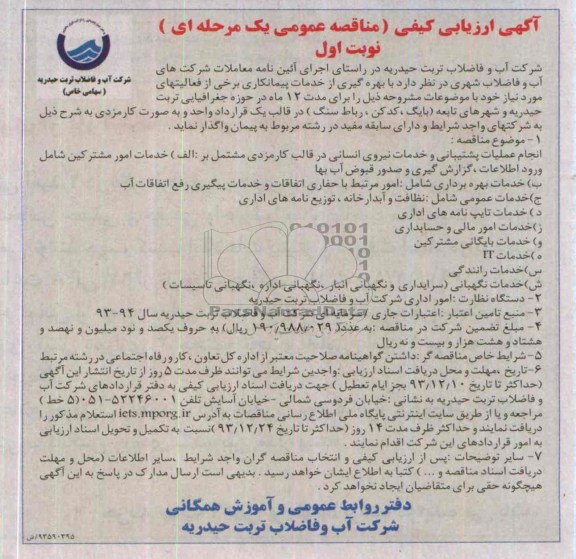 آگهی ارزیابی کیفی ( مناقصه عمومی یک مرحله ای )
نوبت اول
شرکت آب و فاضلاب تربت حیدریه
( سهامی خاص)
شرکت آب و فاضلاب تربت حیدریه در راستای اجرای آئین نامه معاملات شرکت های
آب و فاضلاب شهری در نظر دارد با بهره گیری از خدمات پیمانکاری برخی از فعالیتهای
مورد نیاز خود با موضوعات مشروحه ذیل را برای مدت ۱۲ ماه در حوزه جغرافیایی تربت
حیدریه و شهرهای تابعه (بایگ ،کدکن ، رباط سنگ ) در قالب یک قرارداد واحد و به صورت کارمزدی به شرح ذیل
به شرکتهای واجد شرایط و دارای سابقه مفید در رشته مربوط به پیمان واگذار نماید .
۱- موضوع مناقصه :
انجام عملیات پشتیبانی و خدمات نیروی انسانی در قالب کارمزدی مشتمل بر :الف ) خدمات امور مشترکین شامل
ورود اطلاعات ،گزارش گیری و صدور قبوض آب بها
ب)خدمات بهره برداری شامل :امور مرتبط با حفاری اتفاقات و خدمات پیگیری رفع اتفاقات آب
ج)خدمات عمومی شامل :نظافت و آبدارخانه ، توزیع نامه های اداری
د ) خدمات تایپ نامه های اداری
ز)خدمات امور مالی و حسابداری
و) خدمات بایگانی مشترکین
ه )خدمات IT
س)خدمات رانندگی
ش)خدمات نگهبانی (سرایداری و نگهبانی انبار ،نگهبانی اداره ،نگهبانی تاسیسات )
۲- دستگاه نظارت :امور اداری شرکت آب و فاضلاب تربت حیدریه
۳-منبع تامین اعتبار :اعتبارات جاری /سرمایه ای شرکت آب و فاضلاب تربت حیدریه سال ۹۴-۹۳
۴- مبلغ تضمین شرکت در مناقصه :به عدد( ۱۹۰٫۹۸۸٫۰۲۹ ریال) به حروف یکصد و نود میلیون و نهصد و
هشتاد و هشت هزار و بیست و نه ریال
۵- شرایط خاص مناقصه گر :داشتن گواهینامه صلاحیت معتبر از اداره کل تعاون ، کار و رفاه اجتماعی در رشته مرتبط
۶-تاریخ ،مهلت و محل دریافت اسناد ارزیابی :واجدین شرایط می توانند ظرف مدت ۵ روز از تاریخ انتشار این آگهی
(حداکثر تا تاریخ ۹۳/۱۲/۱۰ بجز ایام تعطیل ) جهت دریافت اسناد ارزیابی کیفی به دفتر قراردادهای شرکت آب
و فاضلاب تربت حیدریه به نشانی :خیابان فردوسی شمالی -خیابان آسایش تلفن ۵۲۲۴۶۰۰۱-۰۵۱(۵ خط )
مراجعه و یا از طریق سایت اینترنتی پایگاه ملی اطلاع رسانی مناقصات به آدرس iets.mporg.ir استعلام مذکور را
دریافت نمایند و حداکثر ظرف مدت ۱۴ روز (حداکثر تا تاریخ ۹۳/۱۲/۲۴ )نسبت به تکمیل و تحویل اسناد ارزیابی
به امور قراردادهای این شرکت اقدام نمایند .
۷- سایر توضیحات :پس از ارزیابی کیفی و انتخاب مناقصه گران واجد شرایط ،سایر اطلاعات (محل و مهلت
دریافت اسناد مناقصه و ... ) کتبا به اطلاع ایشان خواهد رسید . بدیهی است ارسال مدارک در پاسخ به این آگهی
هیچگونه حقی برای متقاضیان ایجاد نخواهد کرد .
دفتر روابط عمومی و آموزش همگانی
شرکت آب وفاضلاب تربت حیدریه
۹۳۵۹۰۳۹۵/ش